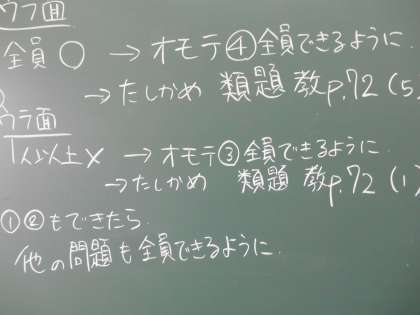 ウラ面
全員〇 → オモテ④全員できるように
→ たしかめ 類題 教p.72 (5
ウラ面
1人以上× → オモテ③全員できるように
→ たしかめ 類題 教p.72 (1)
①②もできたら
他の問題も全員できるように.